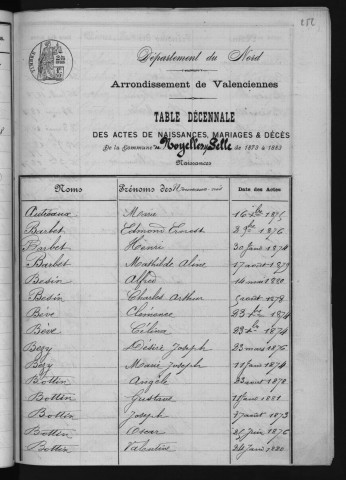 252
Département du Nord
Arrondissement de Valenciennes
TABLE DÉCENNALE
DES ACTES DE NAISSANCES, MARIAGES & DÉCÈS
De la Commune de Noyelles s/ Selle de 1873 à 1883
Naissances
Noms Prénoms des Nouveaux-nés Date des Actes
Autreaux Marie 16 1875
Barbet Edmond Ernest 1876
Barbet Henri 30 1874
Barbet Mathilde Aline 17 août 1879
Besin Alfred 14 mai 1880
Besin Charles Arthur août 1878
Bève Clémence 23 1874
Bève Célina 23 1874
Bézy Désiré Joseph 23 mars 1876
Bézy Marie Joseph 11 1874
Bottin Angèle 23 août 1878
Bottin Gustave 1881
Bottin Joseph août 1873
Bottin Oscar 21 juin 1876
Bottin Valentine 24 1880